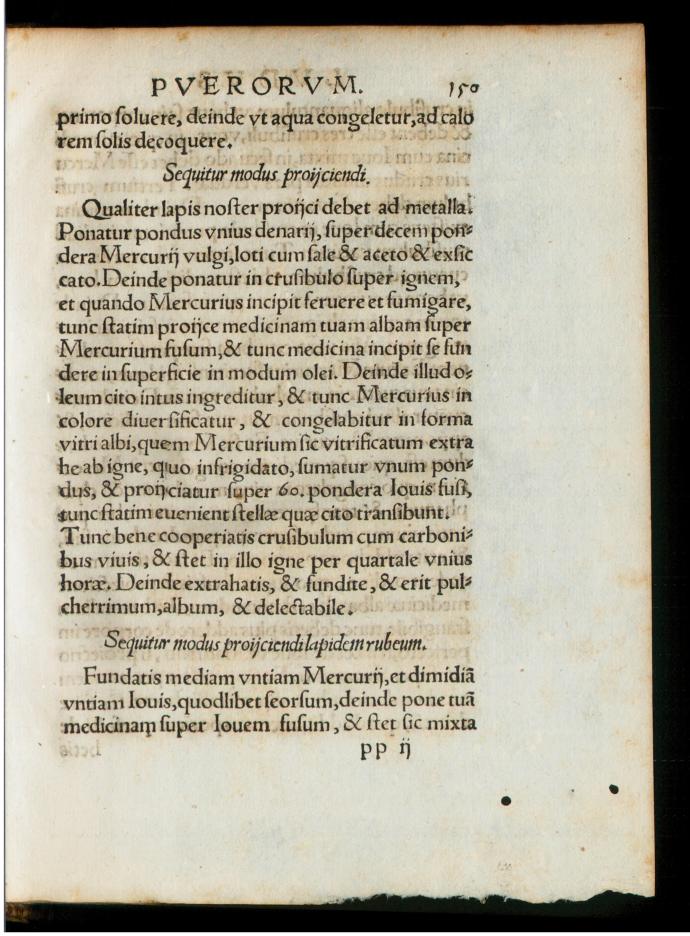 PVERORVM. 150
primo soluere, deinde vt aqua congeletur, ad calo
rem solis decoquere.
Sequitur modus proijciendi.
Qualiter lapis noster proijci debet ad metalla.
Ponatur pondus vnius denarij, super decem pon-
dera Mercurij vulgi, loti cum sale & aceto & exsic
cato. Deinde ponatur in crusibulo super ignem,
et quando Mercurius incipit feruere et fumigare,
tunc statim proijce medicinam tuam albam super
Mercurium fusum, & tunc medicina incipit se fun
dere in superficie in modum olei. Deinde illud o-
leum cito intus ingreditur, & tunc Mercurius in
colore diuersificatur, & congelabitur in forma
vitri albi, quem Mercurium sic vitrificatum extra
he ab igne, quo infrigidato, sumatur vnum pon-
dus, & proijciatur super 60. pondera Iouis fusi,
tunc statim euenient stellæ quæ cito transibunt.
Tunc bene cooperiatis crusibulum cum carboni-
bus viuis, & stet in illo igne per quartale vnius
horæ. Deinde extrahatis, & fundite, & erit pul-
cherrimum, album, & delectabile.
Sequitur modus proijciendi lapidem rubeum.
Fundatis mediam vntiam Mercurij, et dimidiã
vntiam Iouis, quodlibet seorsum, deinde pone tuã
medicinam super Iouem fusum, & stet sic mixta
pp ij